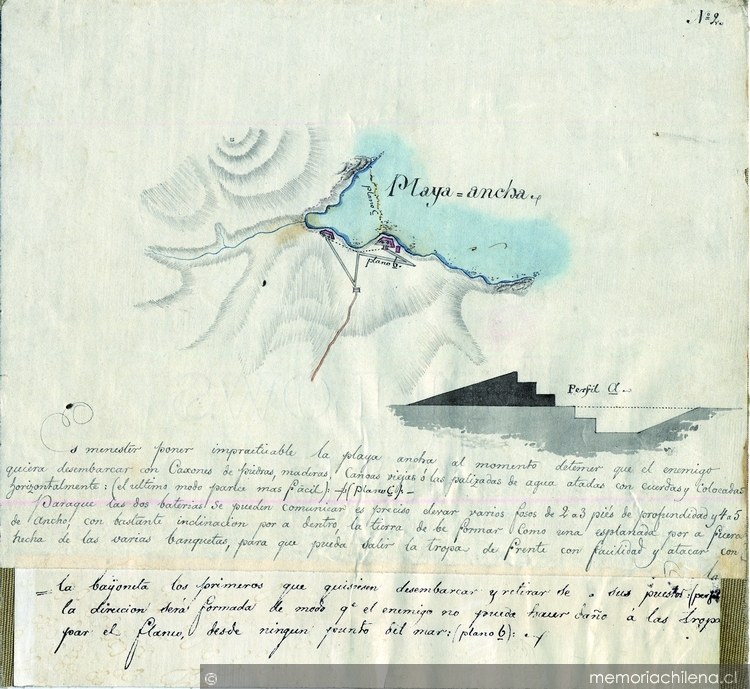 Nº 2.
Playa=ancha.
plano C
plano b.
Perfil a.
Es menester poner impracticable la playa ancha al momento detener que el enemigo
quiera desembarcar con Caxones de piedras, maderas, Canoas viejas ó las palizadas de agua atadas con cuerdas y Colocadas
horizontalmente: (el ultimo modo parece mas fácil): (plano C):
Paraque las dos baterias se pueden comunicar es preciso elevar varios fosos de 2 a 3 piés de profundidad y 4 a 5
de Ancho, con bastante inclinacion por a dentro, la tierra de be formar Como una esplanada por a fuera
hecha de las varias banquetas, para que pueda salir la tropa de frente con facilidad y atacar con
la
= la bayoneta los primeros que quisiesen desembarcar y retirar se a sus puestos: (perfil
la direcion será formada de modo qe el enemigo no pueda hacer daño a las trop
par el flanco, desde ningun punto del mar: (plano b):
© memoriachilena.cl